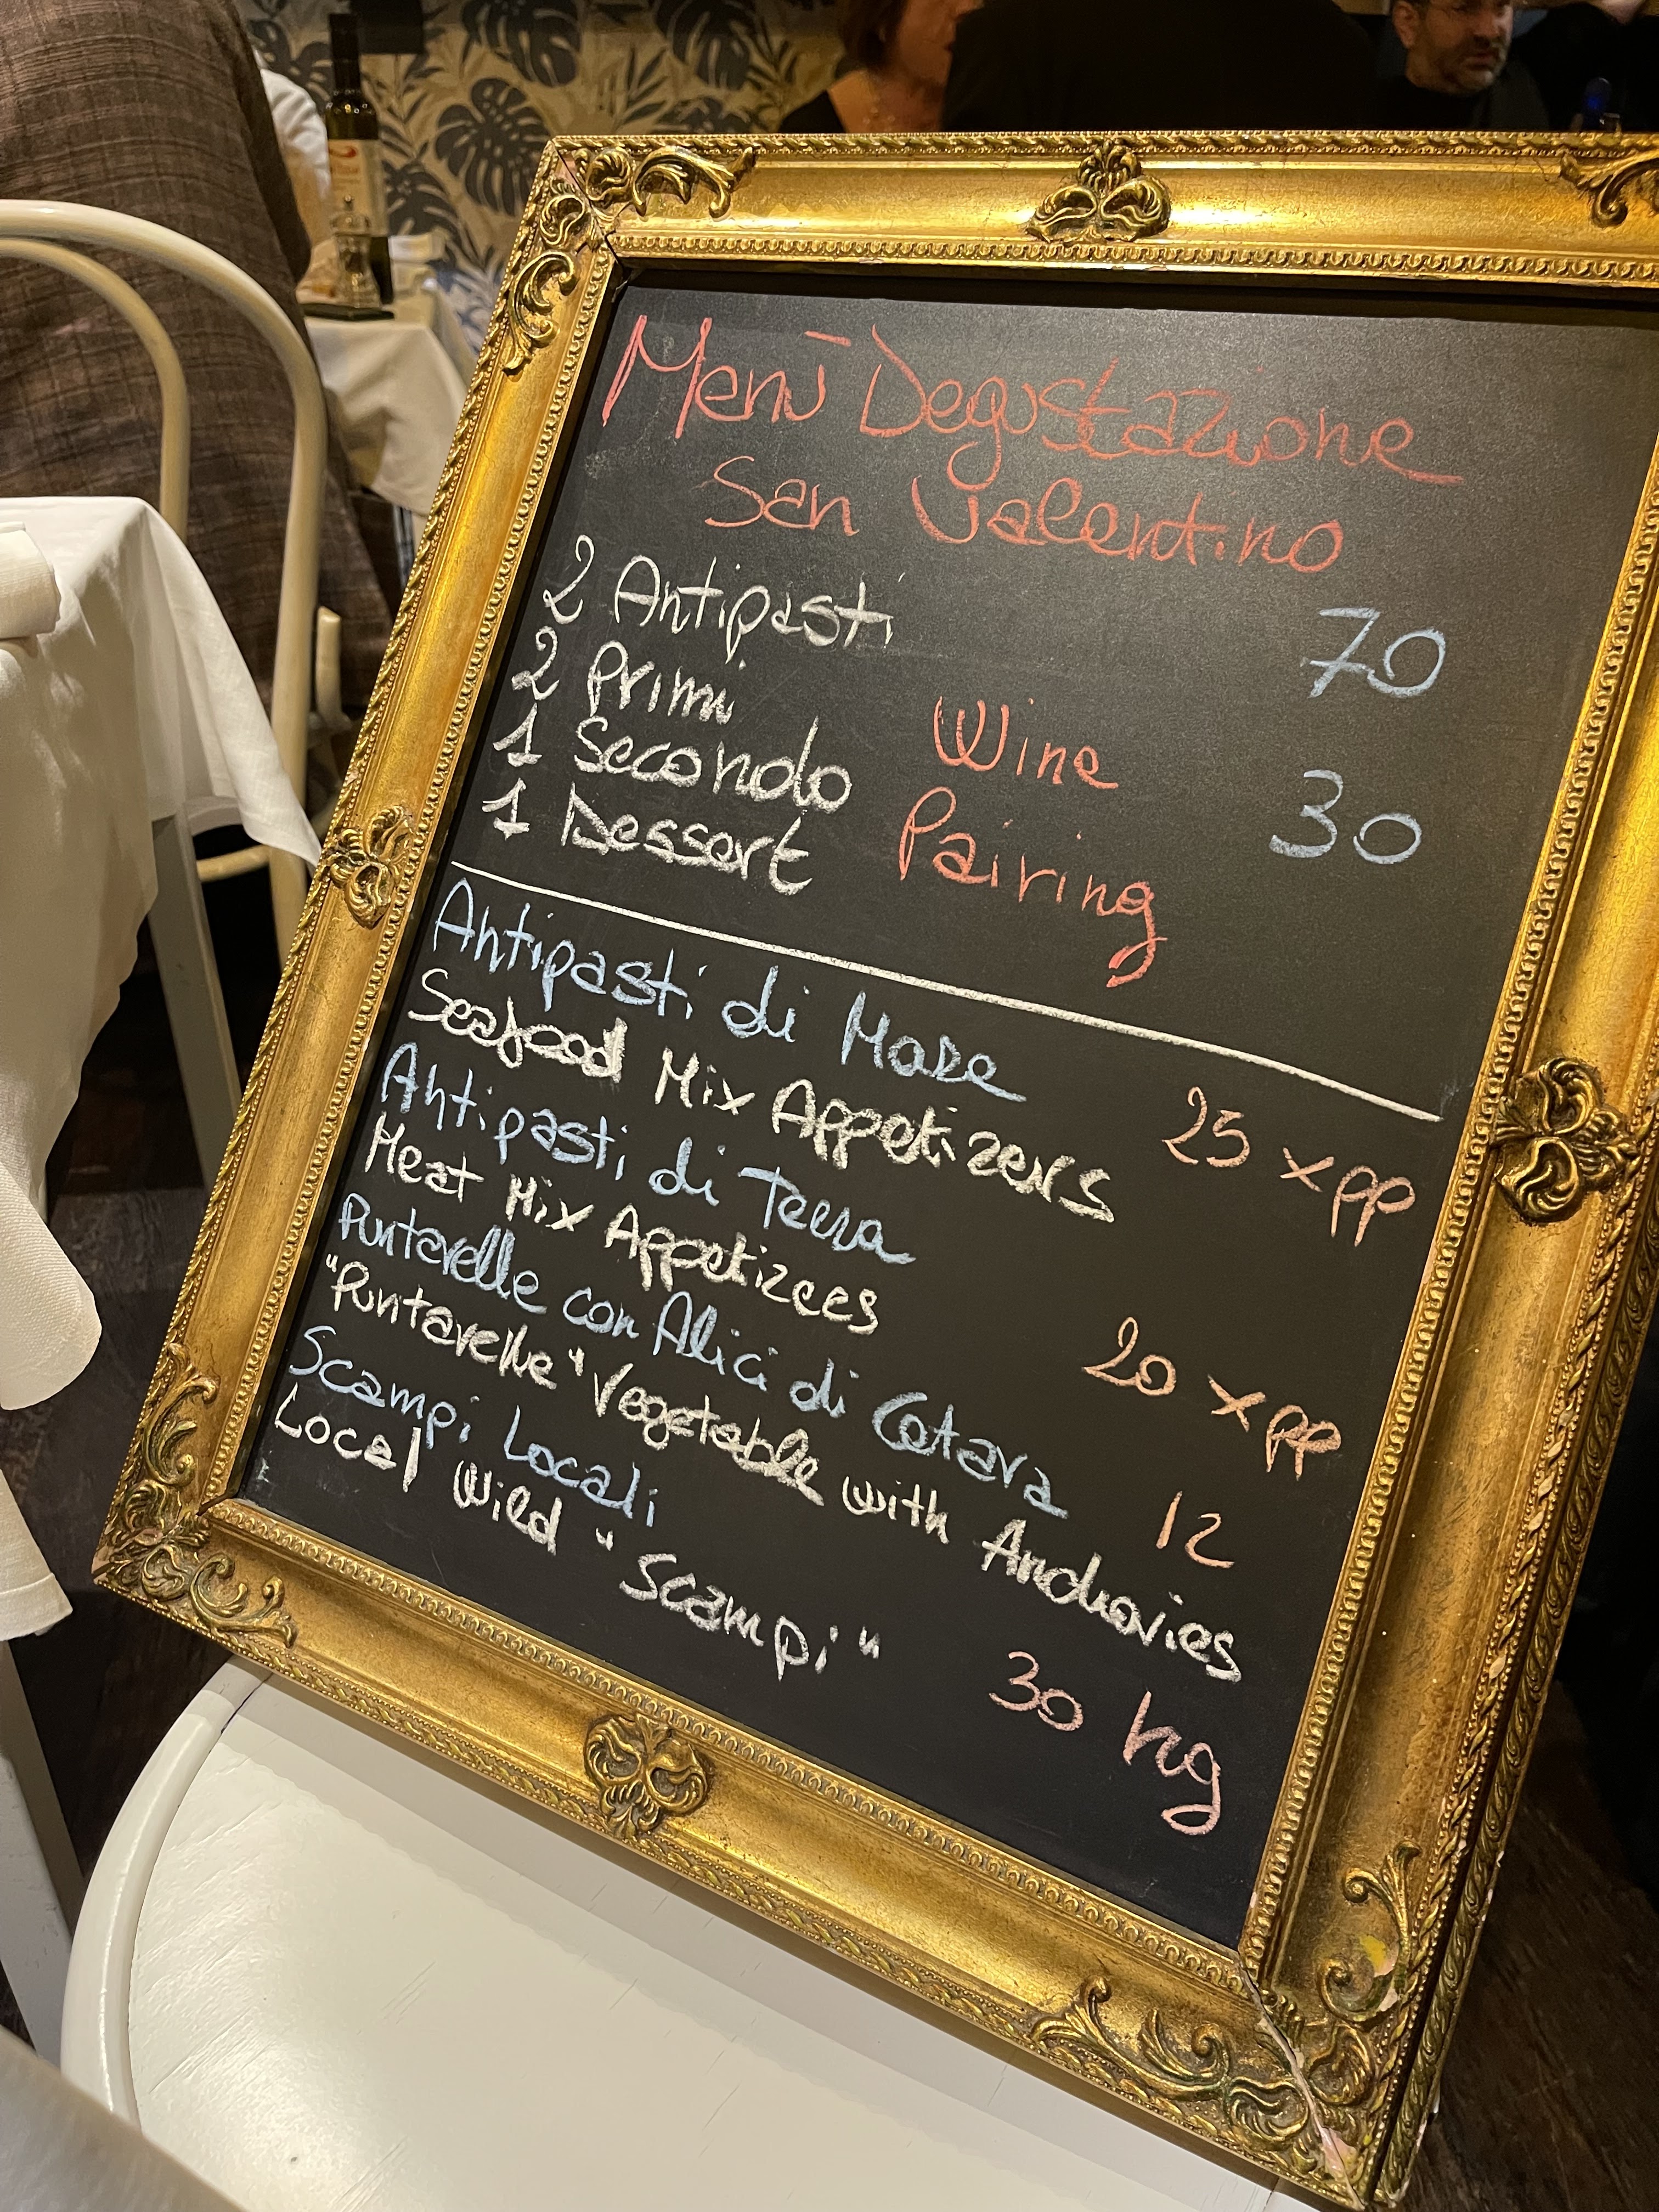 Menù Degustazione
San Valentino
2 Antipasti 70
2 Primi
1 Secondo Wine
1 Dessert Pairing 30
Antipasti di Mare
Seafood Mix Appetizers 25 x PP
Antipasti di Terra
Meat Mix Appetizees 20 x PP
Puntarelle con Alici di Cetara
"Puntarelle" Vegetable with Anchovies 12
Scampi Locali
Local Wild "Scampi" 30 hg